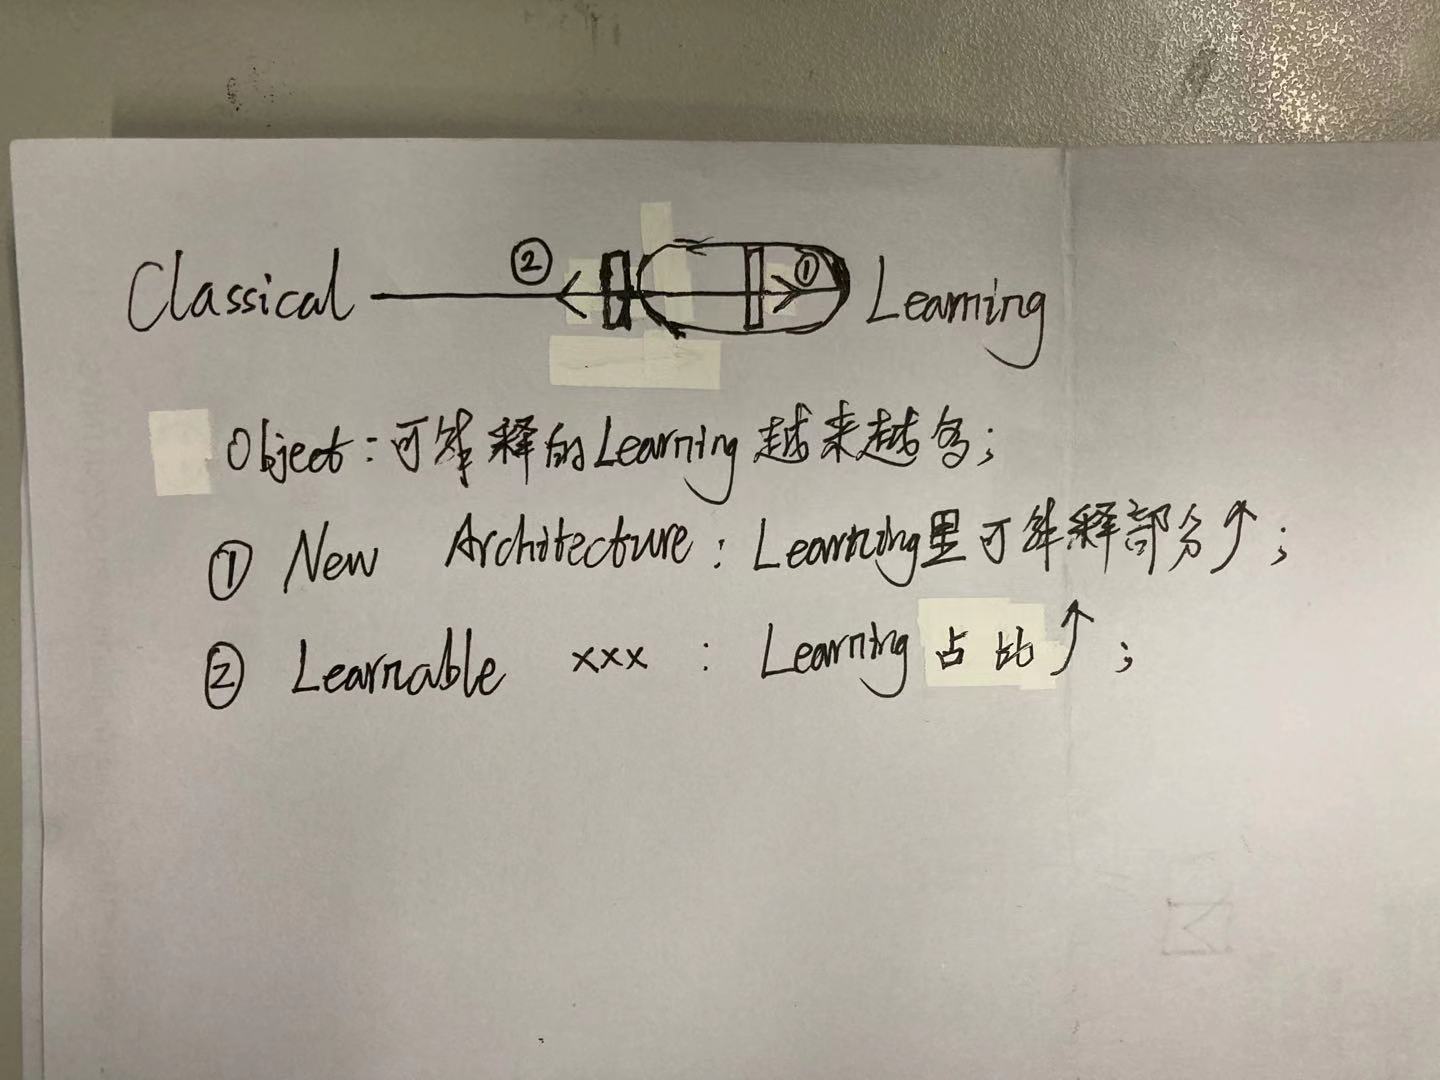 Classical ② ① Learning
Object: 可解释的Learning 越来越多;
① New Architecture: Learning里可解释部分↑;
② Learnable xxx : Learning 占比↑;